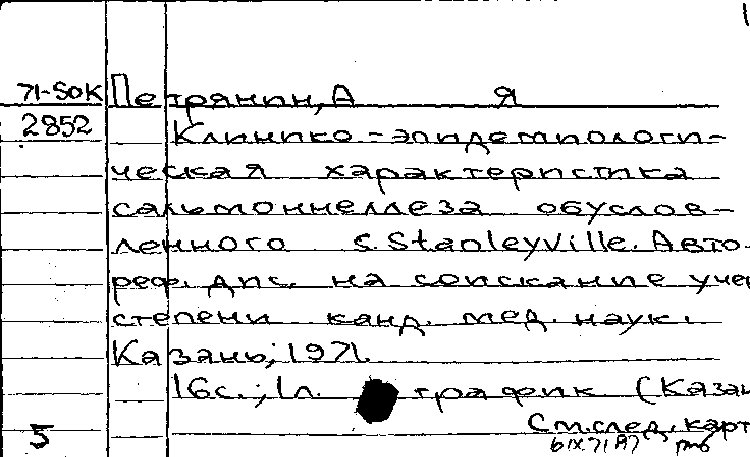 71-SOK Петрянин, А Я
2852 Клинико-эпидемиологи-
ческая характеристика
сальмоннеллеза обуслов-
ленного S. Stanleyville. Авто-
реф. дис. на соискание учен
степени канд. мед. наук.
Казань, 1971.
16с.; 1л. график (Казан
См. след. карт
5 6 IX 71